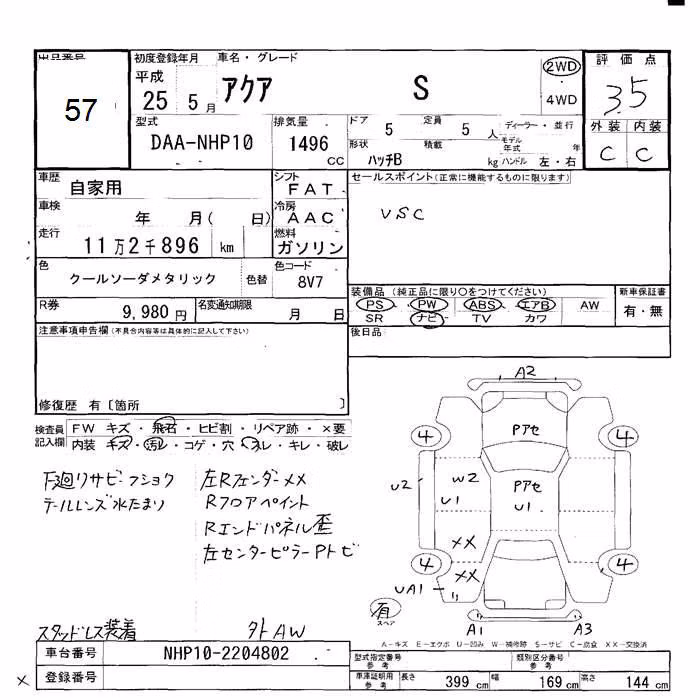 出品番号
57
初度登録年月
平成
25 5 月
車名・グレード
アクア S
2WD
・
4WD
評価点
3.5
外装 内装
C C
型式
DAA-NHP10
排気量
1496
CC
ドア 5 定員 5 人
形状 ハッチB 積載 kg
ディーラー・並行
モデル年式 年
ハンドル 左・右
車歴 自家用
シフト FAT
車検 年 月( 日)
冷房 AAC
走行 11万2千896 km
燃料 ガソリン
色 クールソーダメタリック 色替
色コード 8V7
R券 9,980円
名変通知期限 月 日
セールスポイント(正常に機能するものに限ります)
VSC
装備品(純正品に限り○をつけてください)
PS PW ABS エアB AW
SR ナビ TV カワ
新車保証書
有・無
後日品
注意事項申告欄(不具合内容等は具体的に記入して下さい)
修復歴 有〔箇所 〕
検査員記入欄
FW キズ・飛石・ヒビ割・リペア跡・×要
内装 キズ・汚レ・コゲ・穴・スレ・キレ・破レ
下廻リサビーフショク
テールレンズ水たまり
左Rフェンダー××
Rフロアペイント
Rエンドパネル歪
左センターピラーPトビ
スタッドレス装着
外AW
A2
Pアセ
4 4
U2
W2
U1
Pアセ
U1
××
××
4 4
UA1
有
スペア
A1 A3
A-キズ E-エクボ U-凹み W-補修跡 S-サビ C-腐食 XX-交換済
車台番号 NHP10-2204802
登録番号
×
型式指定番号
参考
類別区分番号
参考
車庫証明用
参考
長さ 399 cm 幅 169 cm 高さ 144 cm